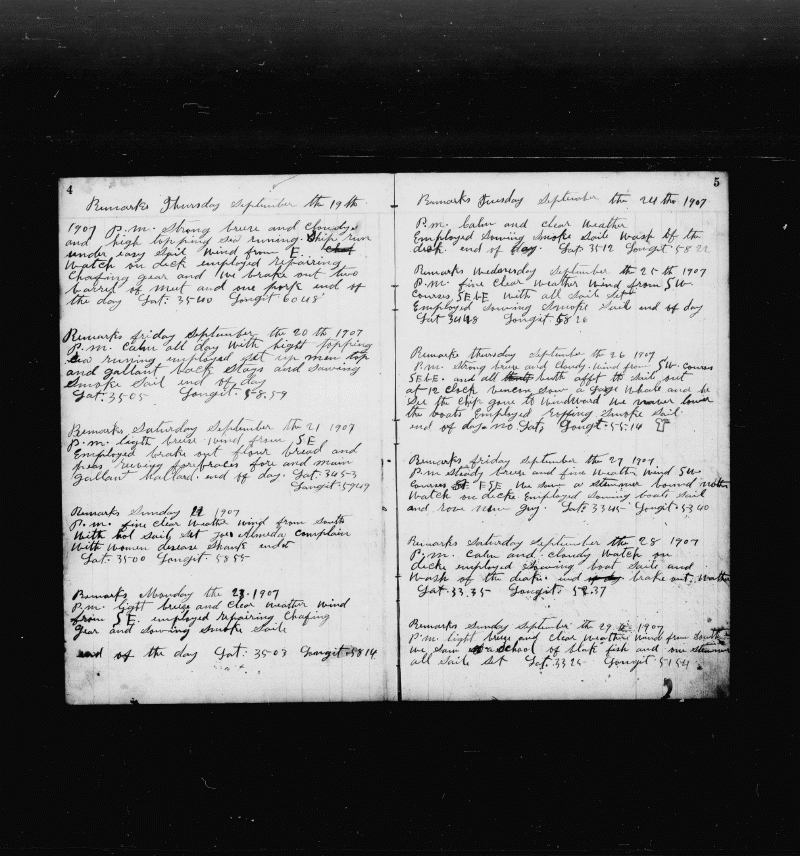 4
Remarks Thursday September the 19 th
1907 P.m. Strong breeze and cloudy.
and high topping Sea running. Ship run
under easy Sail Wind from E.
Watch on deck employed repairing
Chafing gear and We brake out two
barrel of meet and one pork end of
the day Lat. 3540 Longit 6048
Remarks friday September the 20 th 1907
P.m. Calm all day With hight topping
Sea running employed set up men top
and gallant back Stays and Sowing
Smoke Sail end of day
Lat. 3505 Longit. 58.59
Remarks Saturday September the 21 1907
P.m. ligth breese Wind from SE
Employed brake out flour bread and
peas forbrates fore and main
gallant hallard. end of day. Lat. 3453
Longit 5949
Remarks Sunday 1907
P.m. fine Clear Weather Wind from South
With hol Sail Set Almeda Complain
With Women disease Shank
Lat. 3500 Longit 5855
Remarks Monday the 23 1907
P.m. light breese and Clear Weather Wind
from SE. employed repairing Chafing
Gear and Sowing Smoke Saile
end of the day Lat. 3503 Longit 5814
5
Remarks Tuesday September the 24 th 1907
P.m. Calm and Clear Weather
Employed Sowing Smoke Sail Wash off the
deck end of day. Lat. 3512 Longit 5822
Remarks Wednesday September the 25 th 1907
P.m. fine Clear Weather Wind from SW.
Courses SEbE With all Sail Set
Employed Sowing Smoke Sail end of day
Lat 3448 Longit 5826
Remarks Thursday September the 26 1907
P.m. Strong breese and Cloudy. Wind from SW. Courses
SEbE. and all both Sail out
at 12 Clock Saw a Whale and he
See the Ship gone to Windward We never lower
the boats Employed Smoke Sail
end of day. no Lat, Longt. 55.14
Remarks friday September the 27 1907
P.m. Steady breese and fine Weather Wind SW.
Courses ESE We Saw a Steamer bound
Watch on decke Employed Sowing boats Sail
and rove new guy. Lat. 3345 Longit. 5340
Remarks Saturday September the 28 1907
P.m. Calm and Cloudy Watch on
decke employed Sowing boat Saile and
Wash of the deake. end brake out. Water
Lat 33.35 Longit. 52.37
Remarks Sunday September the 29 1907
P.m. light breese and Clear Weather Wind from South
We Saw a School of blak fish and one Steamer
all Saile Set Lat. 3326 Longit 5154